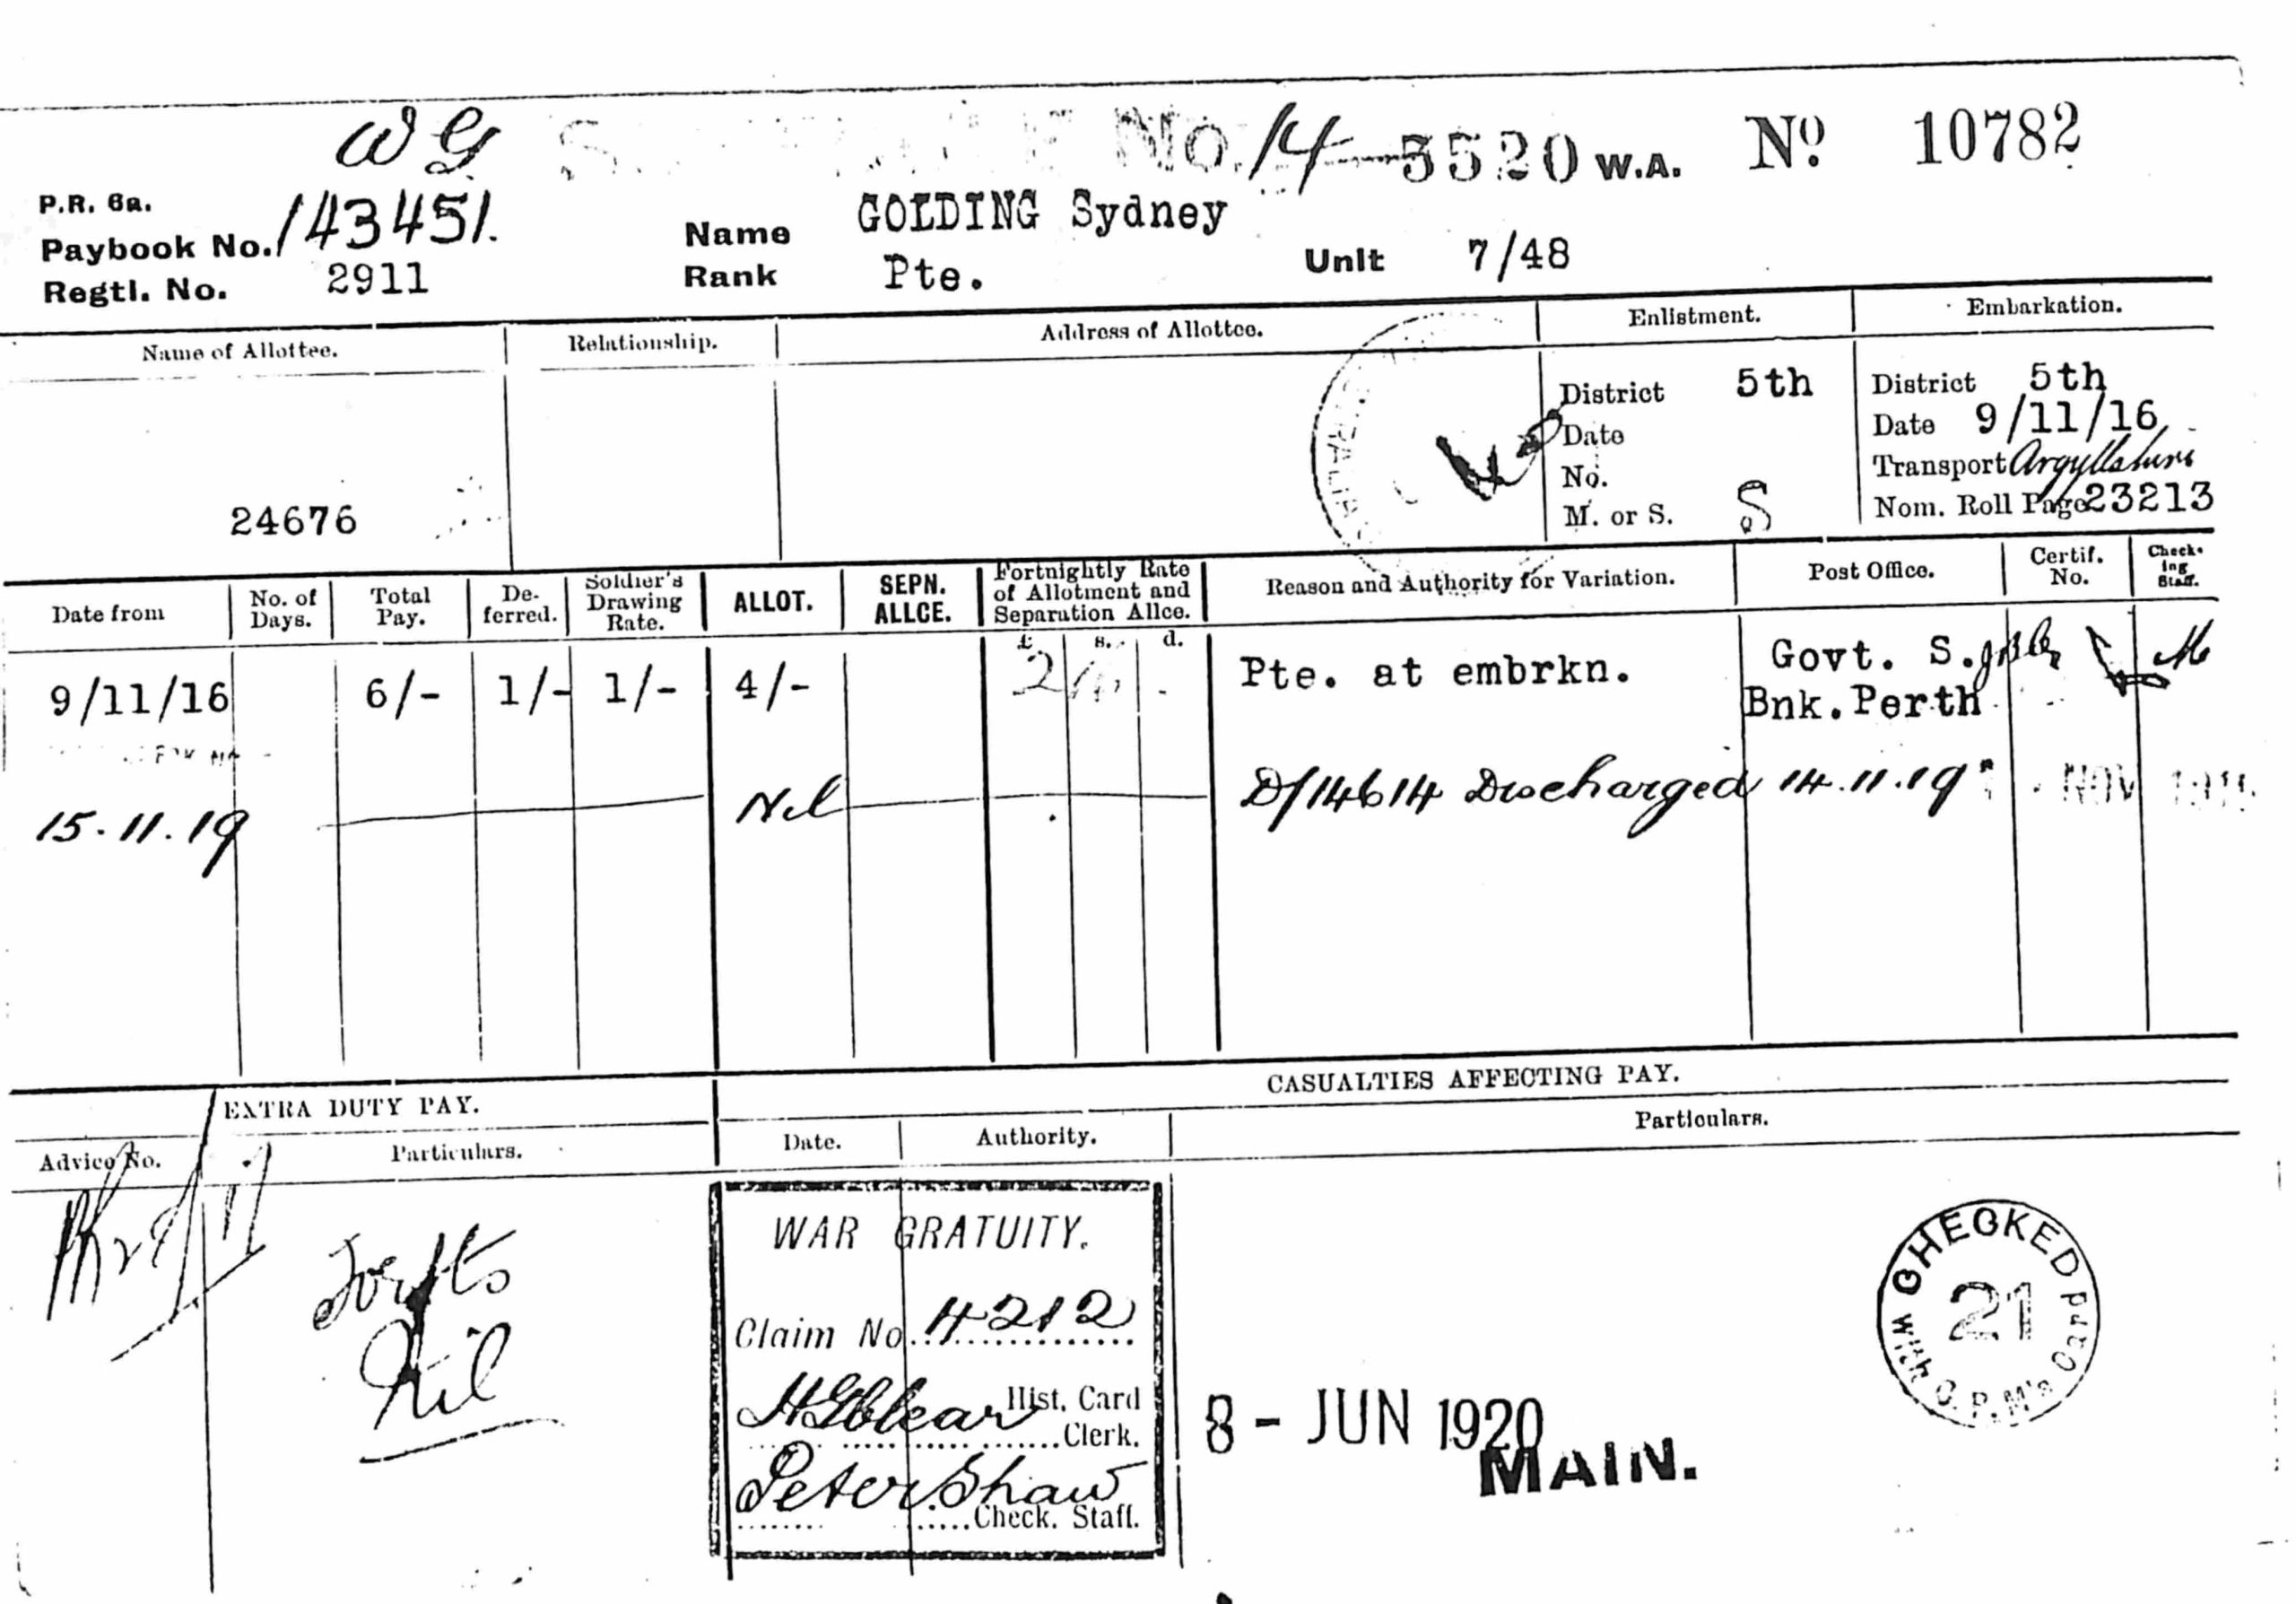 W G No. 14 5520 W.A. Nº 10782
P.R. 6a.
Paybook No. 143451.
Name GOLDING Sydney
Regtl. No. 2911
Rank Pte. Unit 7/48
Name of Allottee. Relationship. Address of Allottee. Enlistment. Embarkation.
District 5th District 5th
Date Date 9/11/16
No. Transport Argyllshire
24676 M. or S. S Nom. Roll Page 23213
Date from No. of Days. Total Pay. De-ferred. Soldier's Drawing Rate. ALLOT. SEPN. ALLCE. Fortnightly Rate of Allotment and Separation Allce. Reason and Authority for Variation. Post Office. Certif. No. Check-ing Staff.
£ s. d.
9/11/16 6/- 1/- 1/- 4/- 2 Pte. at embrkn. Govt. S.
Bnk. Perth
15.11.19 Nil D/14614 Discharged 14.11.19 NOV
EXTRA DUTY PAY. CASUALTIES AFFECTING PAY.
Advice No. Particulars. Date. Authority. Particulars.
WAR GRATUITY.
Claim No. 4212
Hist. Card
Clerk.
Peter Shaw
Check. Staff.
Nil
8 - JUN 1920
MAIN.
CHECKED
21
with C.P.M's Card